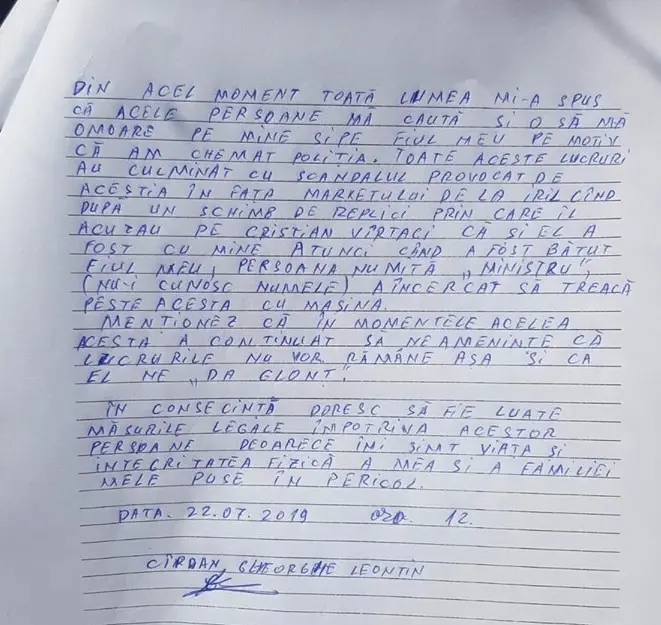 DIN ACEL MOMENT TOATĂ LUMEA MI-A SPUS
CĂ ACELE PERSOANE MĂ CAUTĂ SI O SĂ MĂ
OMOARE PE MINE SI PE FIUL MEU PE MOTIV
CĂ AM CHEMAT POLITIA. TOATE ACESTE LUCRURI
AU CULMINAT CU SCANDALUL PROVOCAT DE
ACESTIA ÎN FATA MARKETULUI DE LA IRIL CÎND
DUPĂ UN SCHIMB DE REPLICI PRIN CARE ÎL
ACUZAU PE CRISTIAN VÎRTACI CĂ SI EL A
FOST CU MINE ATUNCI CÂND A FOST BĂTUT
FIUL MEU, PERSOANA NUMITĂ „MINISTRU",
(NU-I CUNOSC NUMELE) A ÎNCERCAT SĂ TREACĂ
PESTE ACESTA CU MASINA.
MENTIONEZ CĂ ÎN MOMENTELE ACELEA
ACESTA A CONTINUAT SĂ NE AMENINTE CĂ
LUCRURILE NU VOR RĂMÂNE AȘA SI CA
EL NE „DA GLONT".
ÎN CONSECINTĂ DORESC SĂ FIE LUATE
MĂSURILE LEGALE ÎMPOTRIVA ACESTOR
PERSOANE DEOARECE ÎMI SIMT VIATA SI
INTEGRITATEA FIZICĂ A MEA SI A FAMILIEI
MELE PUSE ÎN PERICOL.
DATA. 22.07.2019 ora. 12.
CÎRDAN, GHEORGHE LEONTIN